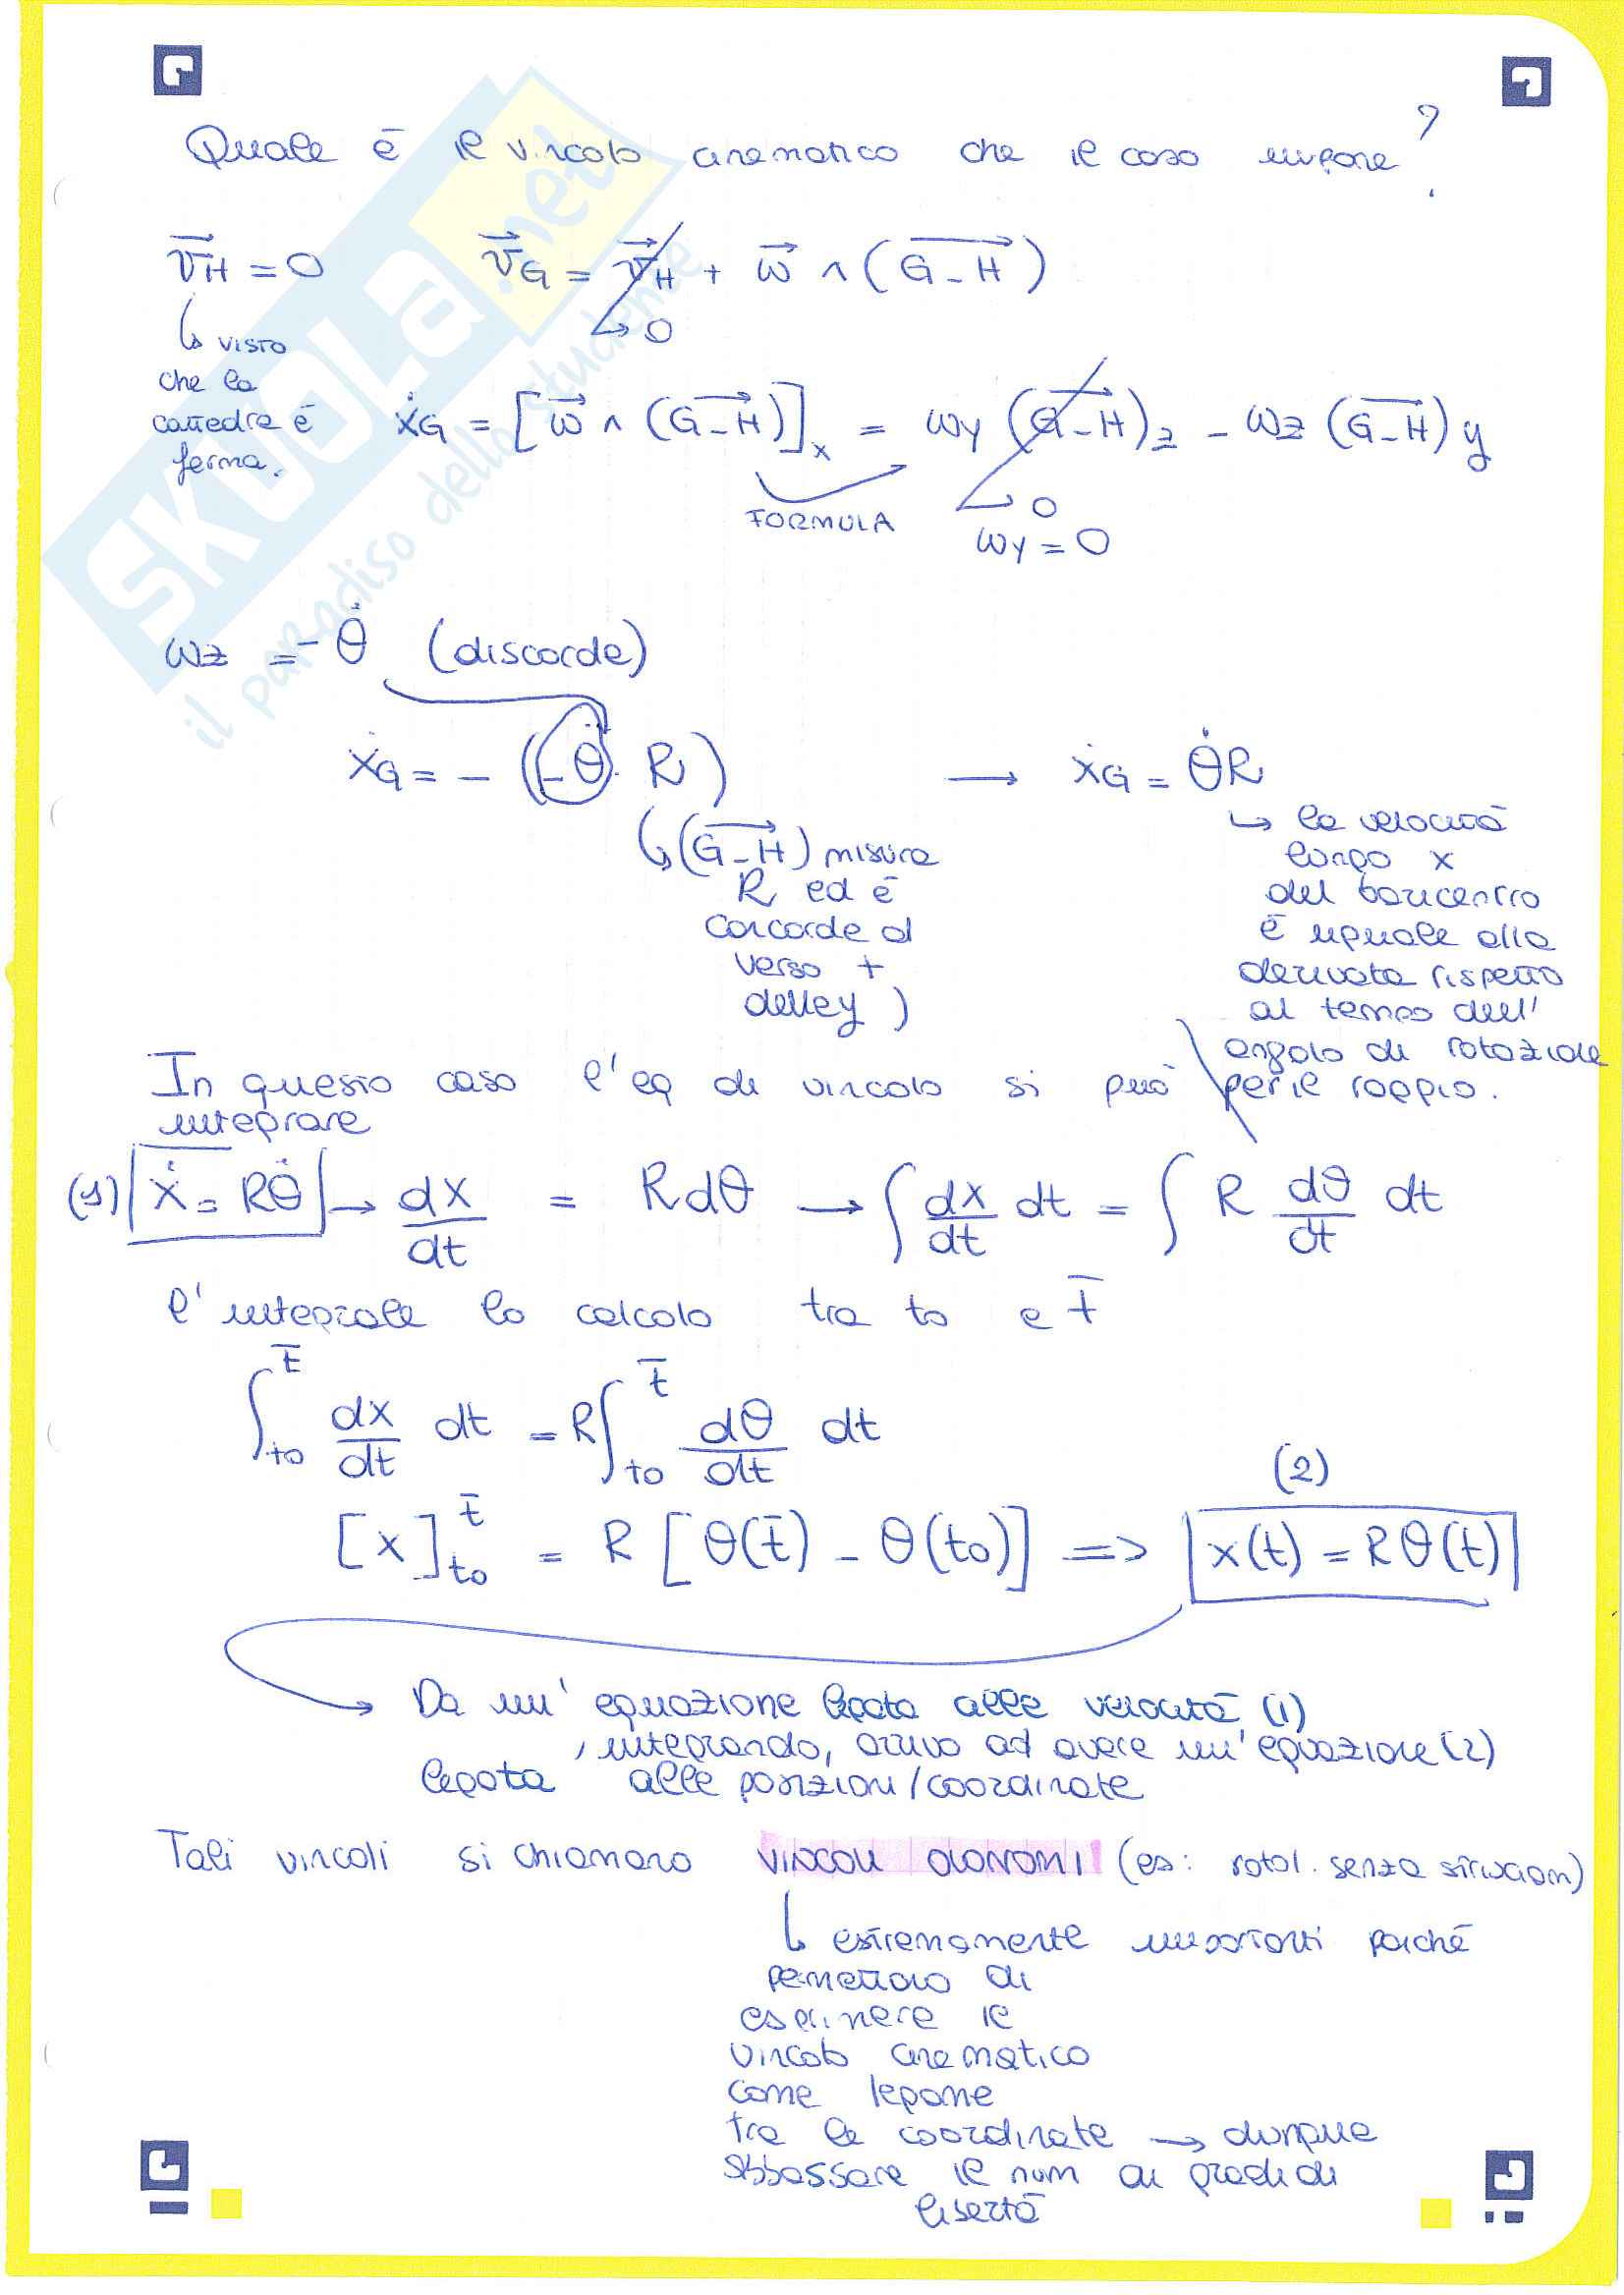 Quale è il vincolo cinematico che il caso impone ?
SKUOLA.net
il paradiso dello studente
v⃗H = 0    v⃗G = v⃗H + ω⃗ ∧ (G-H)
↳ 0
↳ visto
che la
cattedra è
ferma.
ẋG = [ω⃗ ∧ (G-H)]x = ωy (G-H)z - ωz (G-H)y
FORMULA
↳ 0
ωy = 0
ωz = -θ̇ (discorde)
ẋG = - (-θ̇ · R) → ẋG = θ̇R
↳ (G-H) misura
R ed è
concorde al
verso +
delle y )
↳ la velocità
lungo x
del baricentro
è uguale alla
derivata rispetto
al tempo dell'
angolo di rotazione
per il raggio.
In questo caso l'eq di vincolo si può
integrare
(1) ẋ = Rθ̇ → dx/dt = R dθ → ∫ dx/dt dt = ∫ R dθ/dt dt
l'integrale lo calcolo tra to e t̄
∫to t̄ dx/dt dt = R ∫to t̄ dθ/dt dt
(2)
[x]to t̄ = R [θ(t̄) - θ(to)] => x(t) = Rθ(t)
Da un' equazione legata alle velocità (1)
, integrando, arrivo ad avere un' equazione (2)
legata alle posizioni/coordinate
Tali vincoli si chiamano vincoli olonomi (es: rotol. senza strisciam)
↳ estremamente importanti poiché
permettono di
esprimere il
vincolo cinematico
come legame
tra le coordinate → dunque
abbassare il num di gradi di
libertà